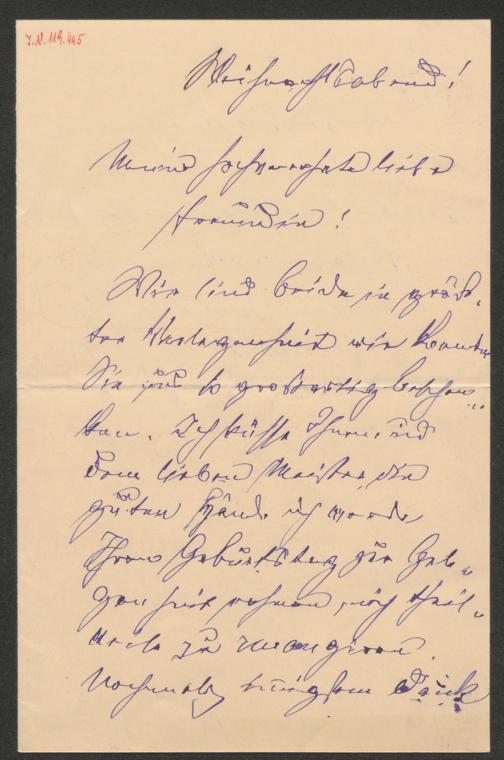 I.N. 119.445
Weihnachtsabend!
Meine hochverehrte liebe
Freundin!
Wir sind beide in größ-
ter Verlegenheit wie konnten
Sie uns so großartig beschen-
ken. Ich küsse Ihnen und
dem lieben Meister die
guten Hände ich werde
Ihren Geburtstag zur Gele-
genheit nehmen mich theil-
weise zu revangieren.
Nochmals innigsten Dank